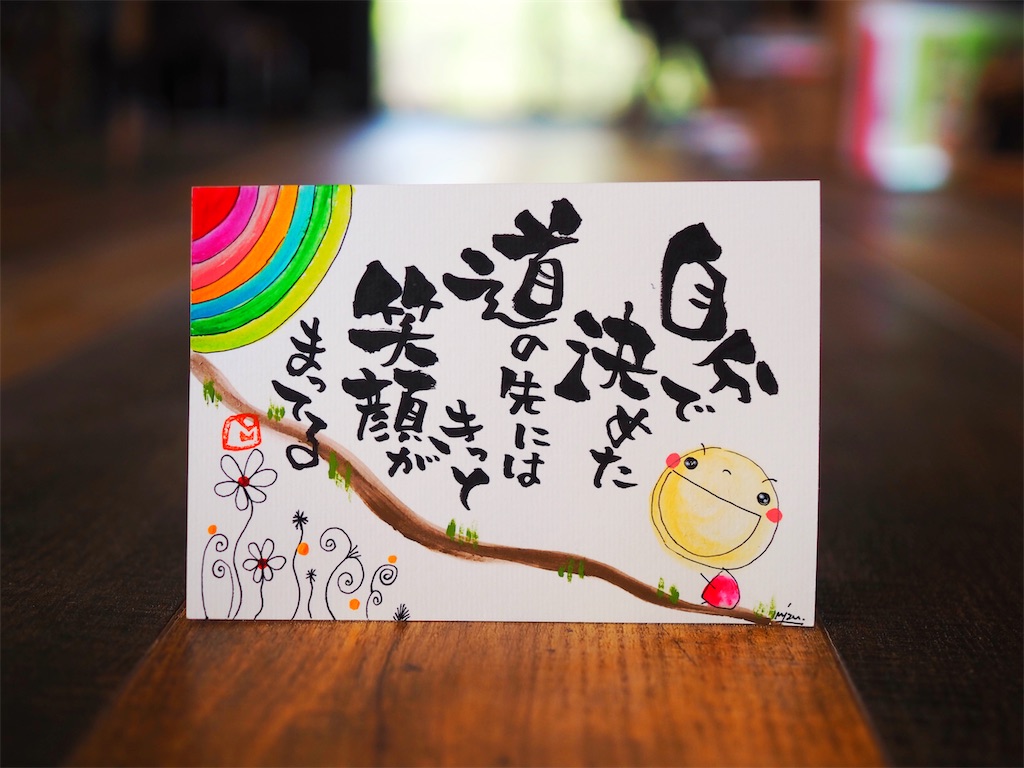 自分で
決めた
道の先には
きっと
笑顔が
まってる